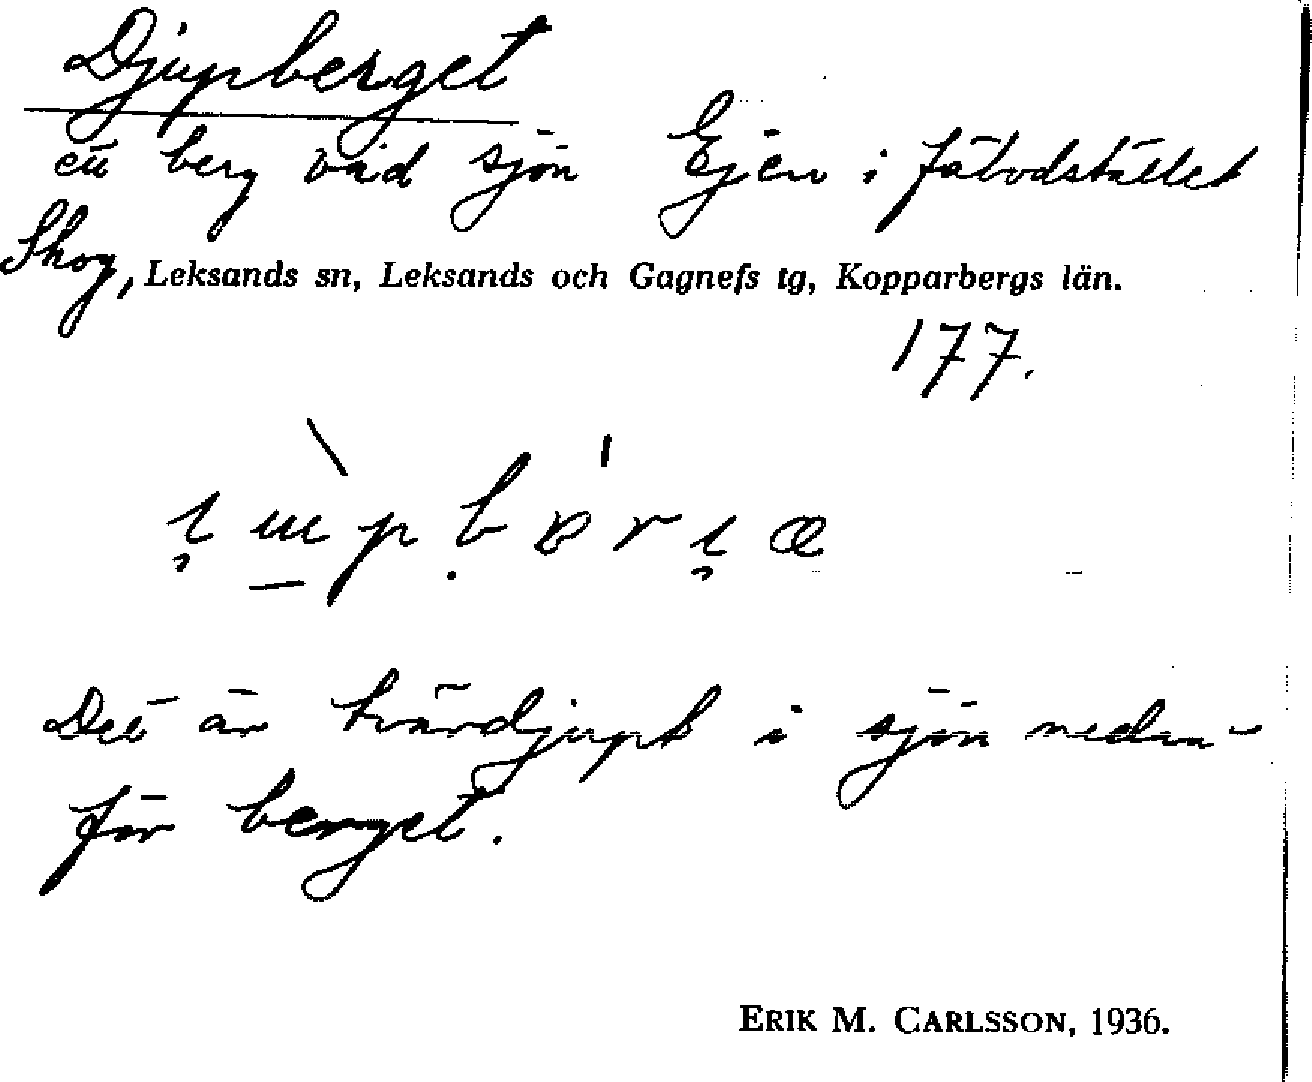 Djupberget
ett berg vid sjön Ejen i fäbodstället
Skog, Leksands sn, Leksands och Gagnefs tg, Kopparbergs län.
177.
Det är tvärdjupt i sjön nedan-
för berget.
ERIK M. CARLSSON, 1936.